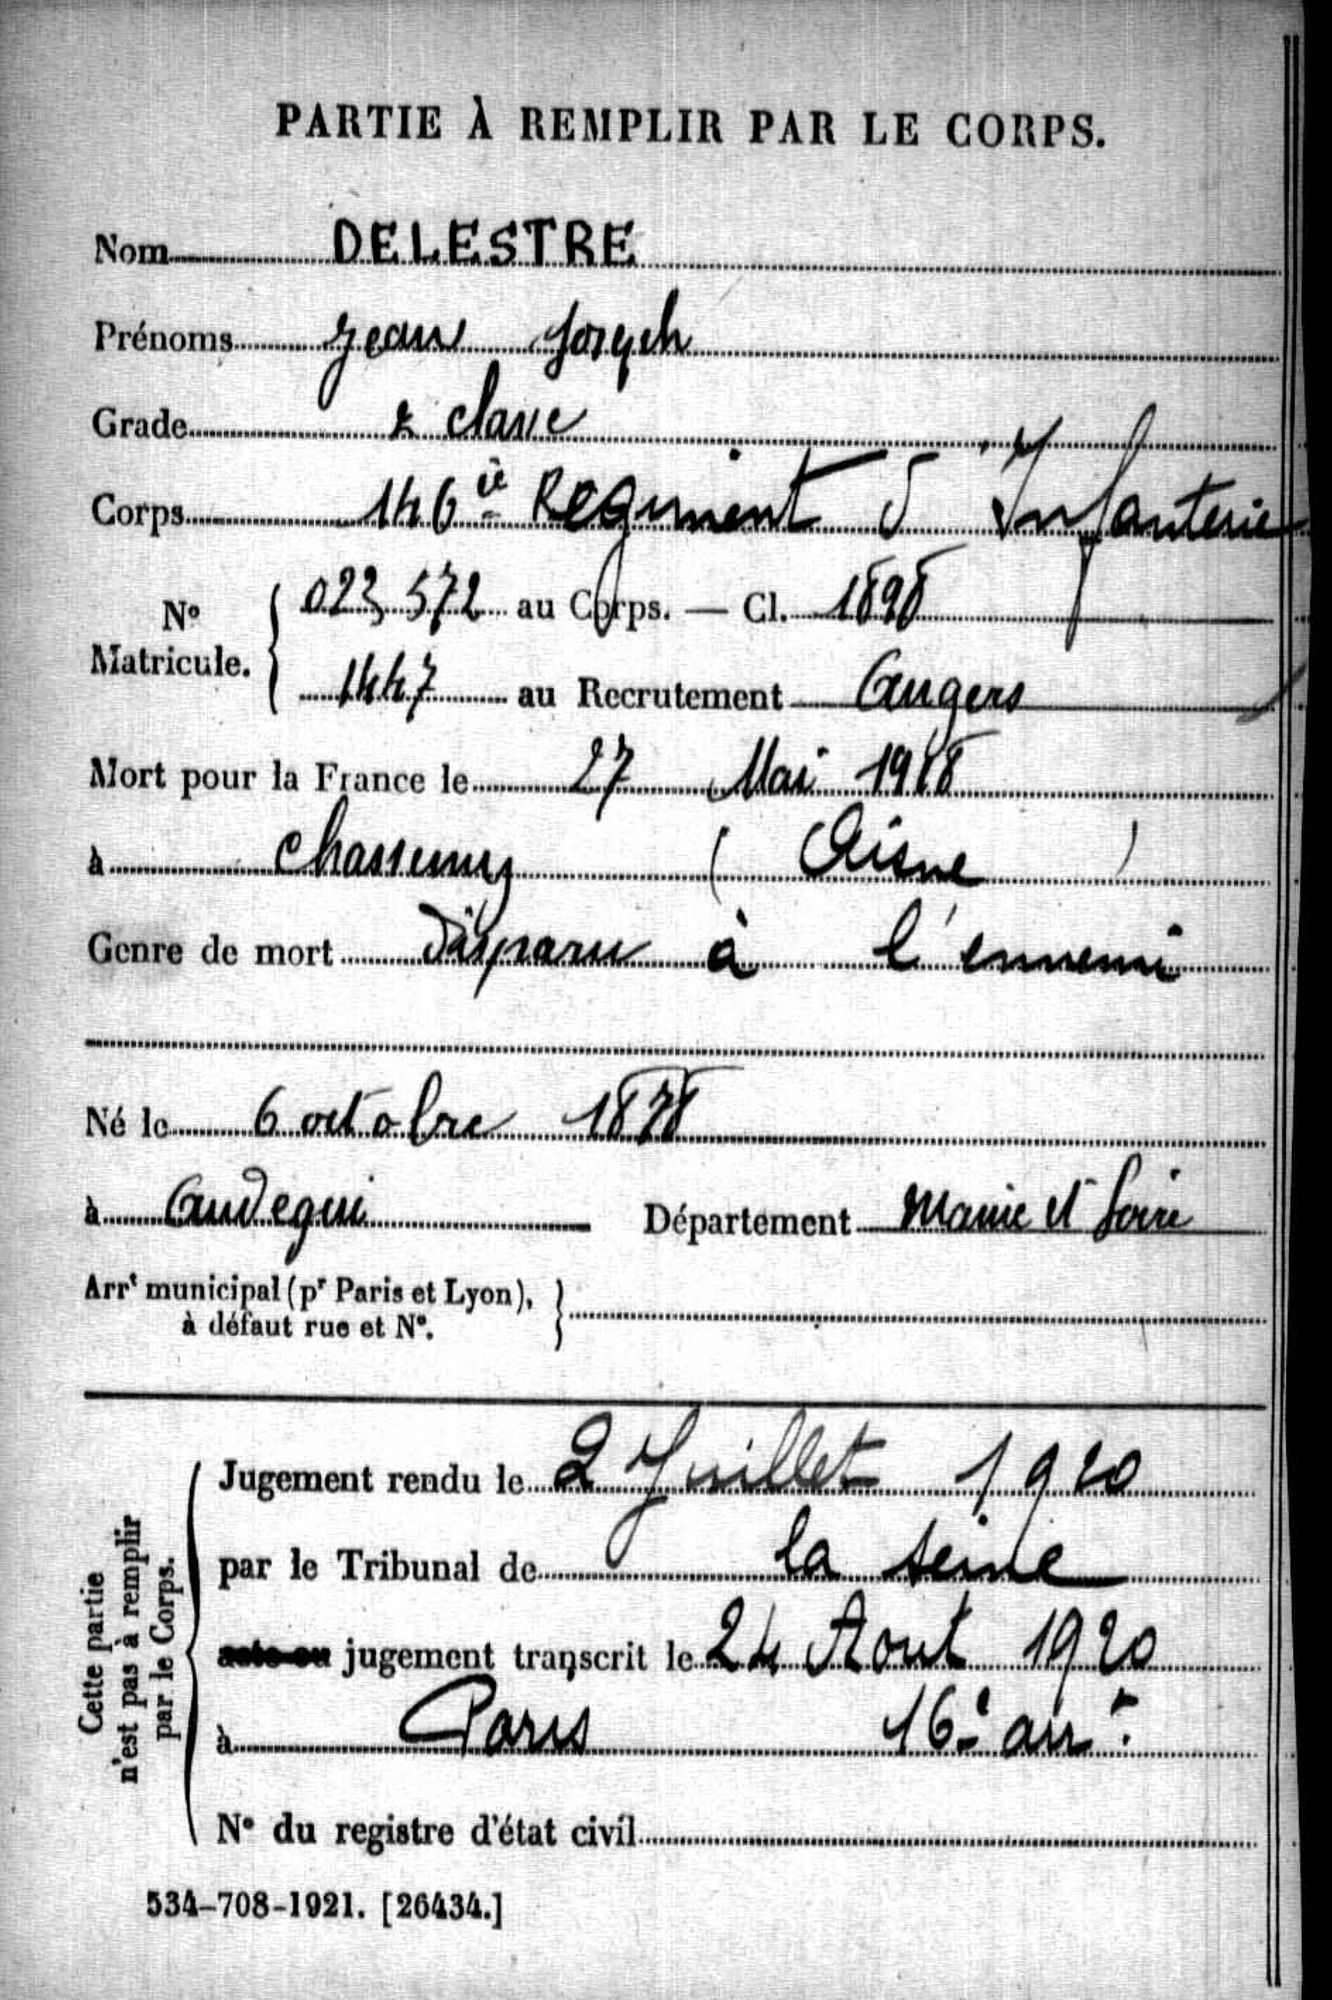 PARTIE À REMPLIR PAR LE CORPS.
Nom DELESTRE
Prénoms Jean Joseph
Grade 2 classe
Corps 146è Regiment d'Infanterie
No Matricule. { 023 572 au Corps. — Cl. 1898
1447 au Recrutement Angers
Mort pour la France le 27 Mai 1918
à Chassemy (Aisne)
Genre de mort Disparu à l'ennemi
Né le 6 octobre 1878
à Andegui Département Maine et Loire
Arrt municipal (pr Paris et Lyon), à défaut rue et No. }
Cette partie n'est pas à remplir par le Corps.
Jugement rendu le 2 Juillet 1920
par le Tribunal de la Seine
acte ou jugement transcrit le 24 Aout 1920
à Paris 16e arrt.
No du registre d'état civil
534-708-1921. [26434.]